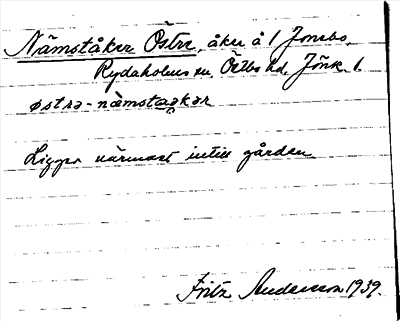 Nämståker Östre, åker å 1 Jonsbo,
Rydaholms sn. Östbo hd. Jönk. l.
østrə-nàmstaəkər
Ligger närmast intill gården
Fritz Andersson 1939.